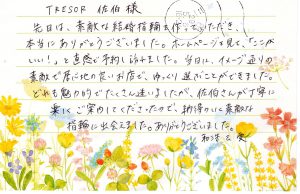 TRESOR 佐伯 様
先日は、素敵な結婚指輪を作っていただき、
本当にありがとうございました。ホームページを見て、「ここが
いい!」と直感で予約し訪ねました。当日は、イメージ通りの
素敵で居心地の良いお店で、ゆっくり選ぶことができました。
どれも魅力的でたくさん迷いましたが、佐伯さんが丁寧に
楽しくご案内してくださったので、納得のいく素敵な
指輪に出会えました。ありがとうございました。